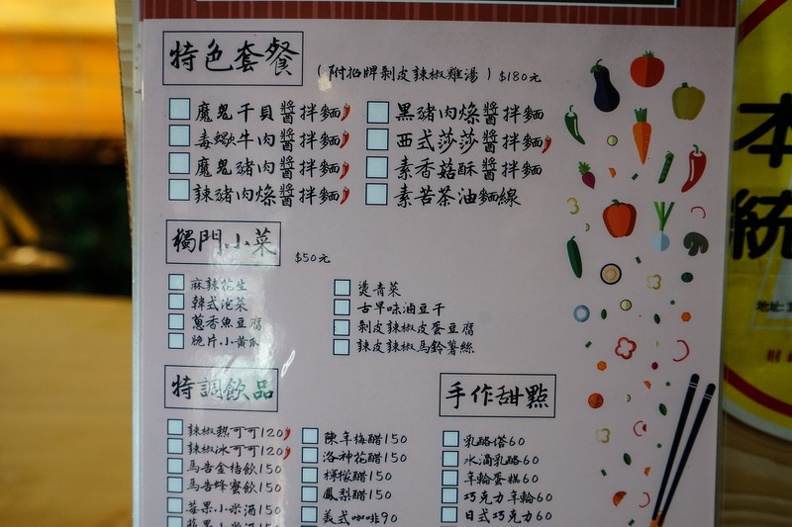 特色套餐
（附招牌剝皮辣椒雞湯）$180元
魔鬼干貝醬拌麵
毒蠍牛肉醬拌麵
魔鬼豬肉醬拌麵
辣豬肉燥醬拌麵
黑豬肉燥醬拌麵
西式莎莎醬拌麵
素香菇酥醬拌麵
素苦茶油麵線
獨門小菜
$50元
麻辣花生
韓式泡菜
蔥香魚豆腐
脆片小黃瓜
燙青菜
古早味油豆干
剝皮辣椒皮蛋豆腐
辣皮辣椒馬鈴薯絲
特調飲品
辣椒熱可可120
辣椒冰可可120
馬告金桔飲150
馬告蜂蜜飲150
莓果小米酒150
陳年梅醋150
洛神花醋150
檸檬醋150
鳳梨醋150
美式咖啡90
手作甜點
乳酪塔60
水滴乳酪60
年輪蛋糕60
巧克力年輪60
日式巧克力60
本
統
地址: